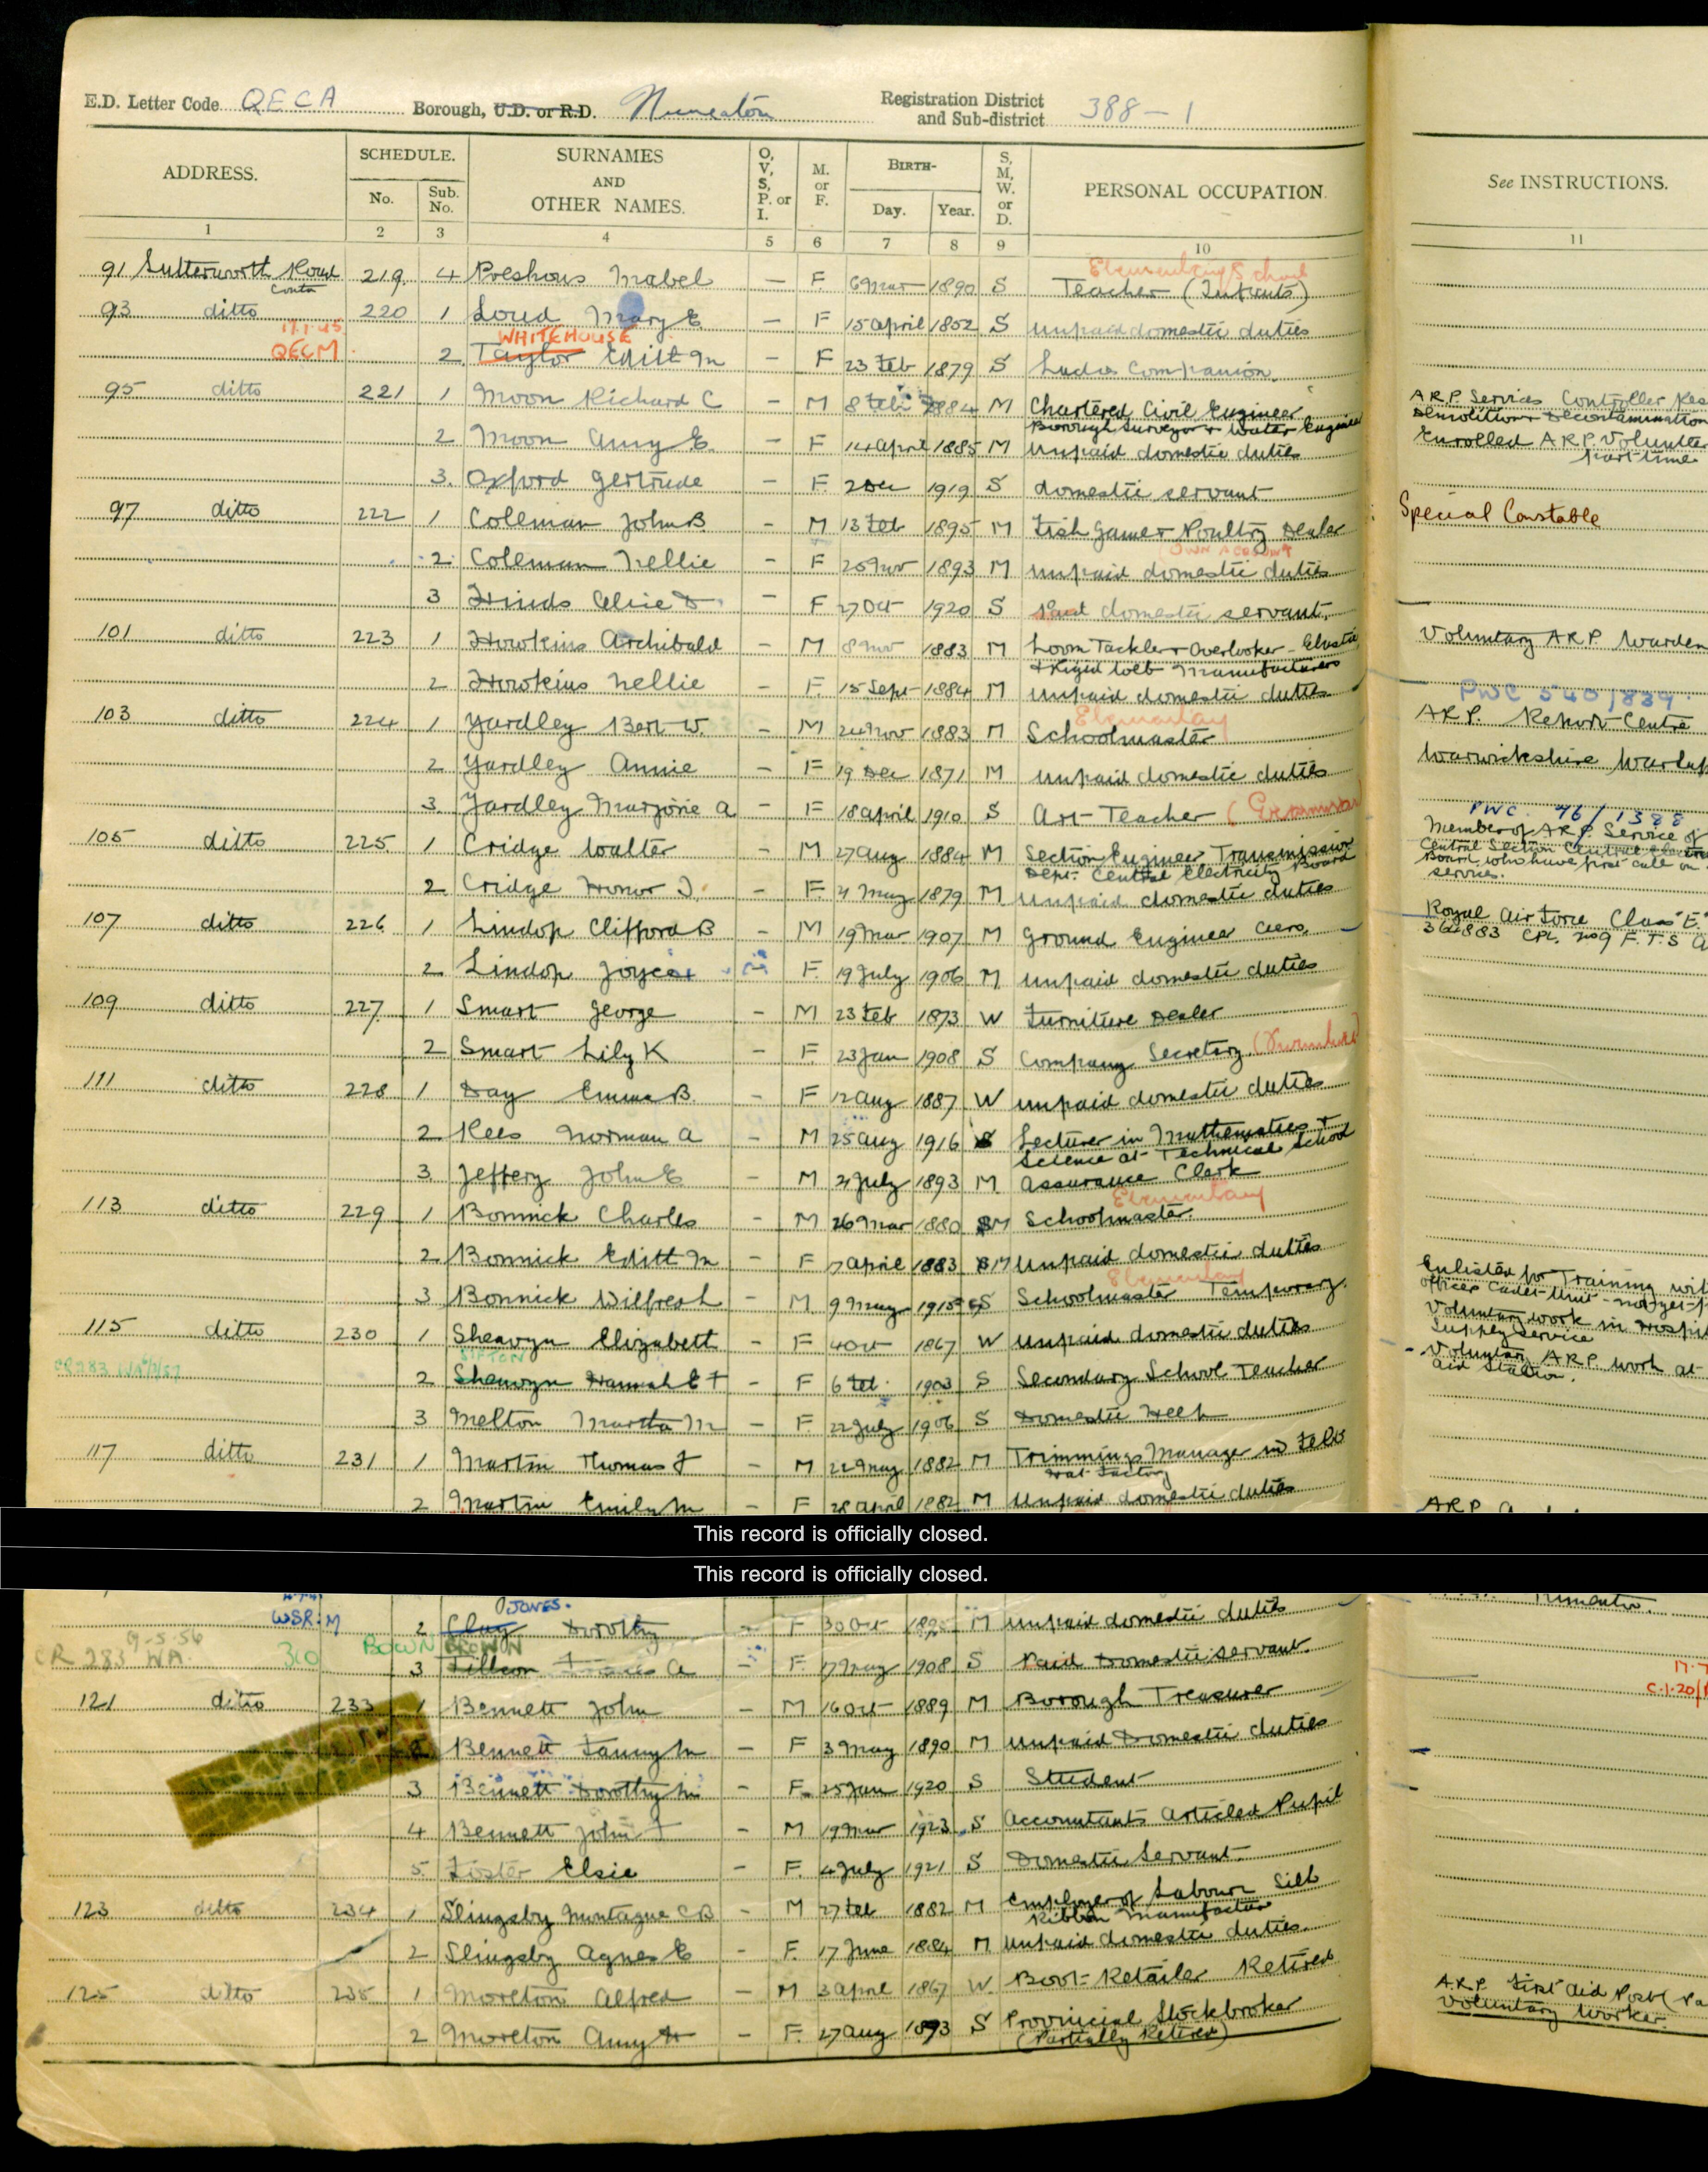 E.D. Letter Code QECA Borough, U.D. or R.D. Nuneaton Registration District and Sub-district 388-1
ADDRESS. SCHEDULE. No. Sub. No. SURNAMES AND OTHER NAMES. O, V, S, P. or I. M. or F. BIRTH- Day. Year. S, M, W. or D. PERSONAL OCCUPATION. See INSTRUCTIONS.
1 2 3 4 5 6 7 8 9 10 11
Elementary School
91 Lutterworth Road 219 4 Preshous Mabel - F 6 Mar 1890 S Teacher (Infants)
contd
93 ditto 220 1 Lord Mary E. - F 15 April 1852 S Unpaid domestic duties
17.1.45 WHITEHOUSE
QECM 2 Taylor Edith M - F 23 Feb 1879 S Ladies Companion
95 ditto 221 1 Moon Richard C - M 8 Feb 1884 M Chartered Civil Engineer A.R.P. Services Controller
Borough Surveyor & Water Engineer Demolition & Decontamination
2 Moon Amy E. - F 14 April 1885 M Unpaid domestic duties Enrolled A.R.P. Volunteer
part-time
3. Oxford Gertrude - F 2 Dec 1919 S domestic servant
97 ditto 222 1 Coleman John B - M 13 Feb 1895 M Fish Game & Poultry Dealer Special Constable
OWN ACCOUNT
2 Coleman Nellie - F 25 Nov 1893 M Unpaid domestic duties
3 Hinds Alice D - F 27 Oct 1920 S Paid domestic servant.
101 ditto 223 1 Howkins Archibald - M 8 Nov 1883 M Loom Tackler & Overlooker - Elastic Voluntary A.R.P. Warden
& Rigid Web Manufacturers
2 Howkins Nellie - F 15 Sept 1884 M Unpaid domestic duties
Elementary PWC 540/839
103 ditto 224 1 Yardley Bert W. - M 24 Nov 1883 M Schoolmaster A.R.P. Report Centre
2 Yardley Annie - F 19 Dec 1871 M Unpaid domestic duties Warwickshire
3. Yardley Marjorie A - F 18 April 1910 S Art Teacher (Grammar
PWC 46/1388
105 ditto 225 1 Cridge Walter - M 27 Aug 1884 M Section Engineer, Transmission Member of A.R.P. Service of
Dept. Central Electricity Board Central Section Central
Board who have first call on
2 Cridge Honor J. - F 4 May 1879 M Unpaid domestic duties services.
107 ditto 226 1 Lindop Clifford B - M 19 Mar 1907 M Ground Engineer Aero. Royal Air Force Class "E"
364883 CPL. No 9 F.T.S
2 Lindop Joyce - F 19 July 1906 M Unpaid domestic duties
109 ditto 227 1 Smart George - M 23 Feb 1873 W Furniture Dealer
2 Smart Lily K - F 23 Jan 1908 S Company Secretary (Furniture)
111 ditto 228 1 Day Emma B. - F 12 Aug 1887 W Unpaid domestic duties
2 Rees Norman A - M 25 Aug 1916 S Lecturer in Mathematics &
Science at Technical School
3 Jeffery John E - M 2 July 1893 M Assurance Clerk
Elementary
113 ditto 229 1 Bonnick Charles - M 26 Mar 1880 M Schoolmaster
2 Bonnick Edith M - F 7 April 1883 M Unpaid domestic duties
Elementary
3 Bonnick Wilfred - M 9 May 1915 S Schoolmaster Temporary. Enlisted for Training with
Officer Cadet Unit - not yet
115 ditto 230 1 Sheavyn Elizabeth - F 4 Oct 1867 W Unpaid domestic duties Voluntary work in Hospital
Supply Service
CR283 SIFTON
2 Sheavyn Hannah E F - F 6 Feb 1903 S Secondary School Teacher Voluntary A.R.P. work at
aid station.
3 Melton Martha M - F 22 July 1906 S Domestic Help
117 ditto 231 1 Martin Thomas F - M 22 May 1882 M Trimmings Manager in Felt
Hat Factory
2 Martin Emily M - F 28 April 1882 M Unpaid domestic duties
ARP
This record is officially closed.
This record is officially closed.
JONES.
WSR:M 2 Clay Dorothy - F 30 Oct 1895 M Unpaid domestic duties
9-5-56 BOWN BROWN
CR 283 WA. 30 3 Tillson Frances A - F 17 May 1908 S Paid Domestic servant.
121 ditto 233 1 Bennett John - M 16 Oct 1889 M Borough Treasurer
2 Bennett Fanny M - F 3 May 1890 M Unpaid Domestic duties
3 Bennett Dorothy M - F 25 Jan 1920 S Student
4 Bennett John F - M 19 Mar 1923 S Accountants Articled Pupil
5. Foster Elsie - F. 4 July 1921 S Domestic Servant
123 ditto 234 1 Slingsby Montague C B - M 27 Feb 1882 M Employer of Labour Silk
Ribbon Manufacture
2 Slingsby Agnes E - F. 17 June 1884 M Unpaid domestic duties.
125 ditto 235 1 Moreton Alfred - M 3 April 1867 W. Boot-Retailer Retired
2 Moreton Amy H - F. 27 Aug 1893 S Provincial Stockbroker A.R.P. First Aid Post
(Partially Retired) Voluntary Worker.